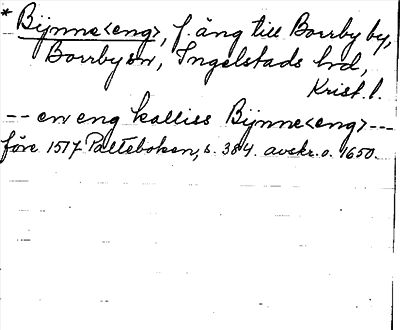 * Bÿnne<eng>, f. äng till Borrby by,
Borrby sn, Ingelstads hd,
Krist. l.
-- en eng kalliss Bÿnne<eng> ---
före 1517 Palteboken, s. 384. avskr. o. 1650.